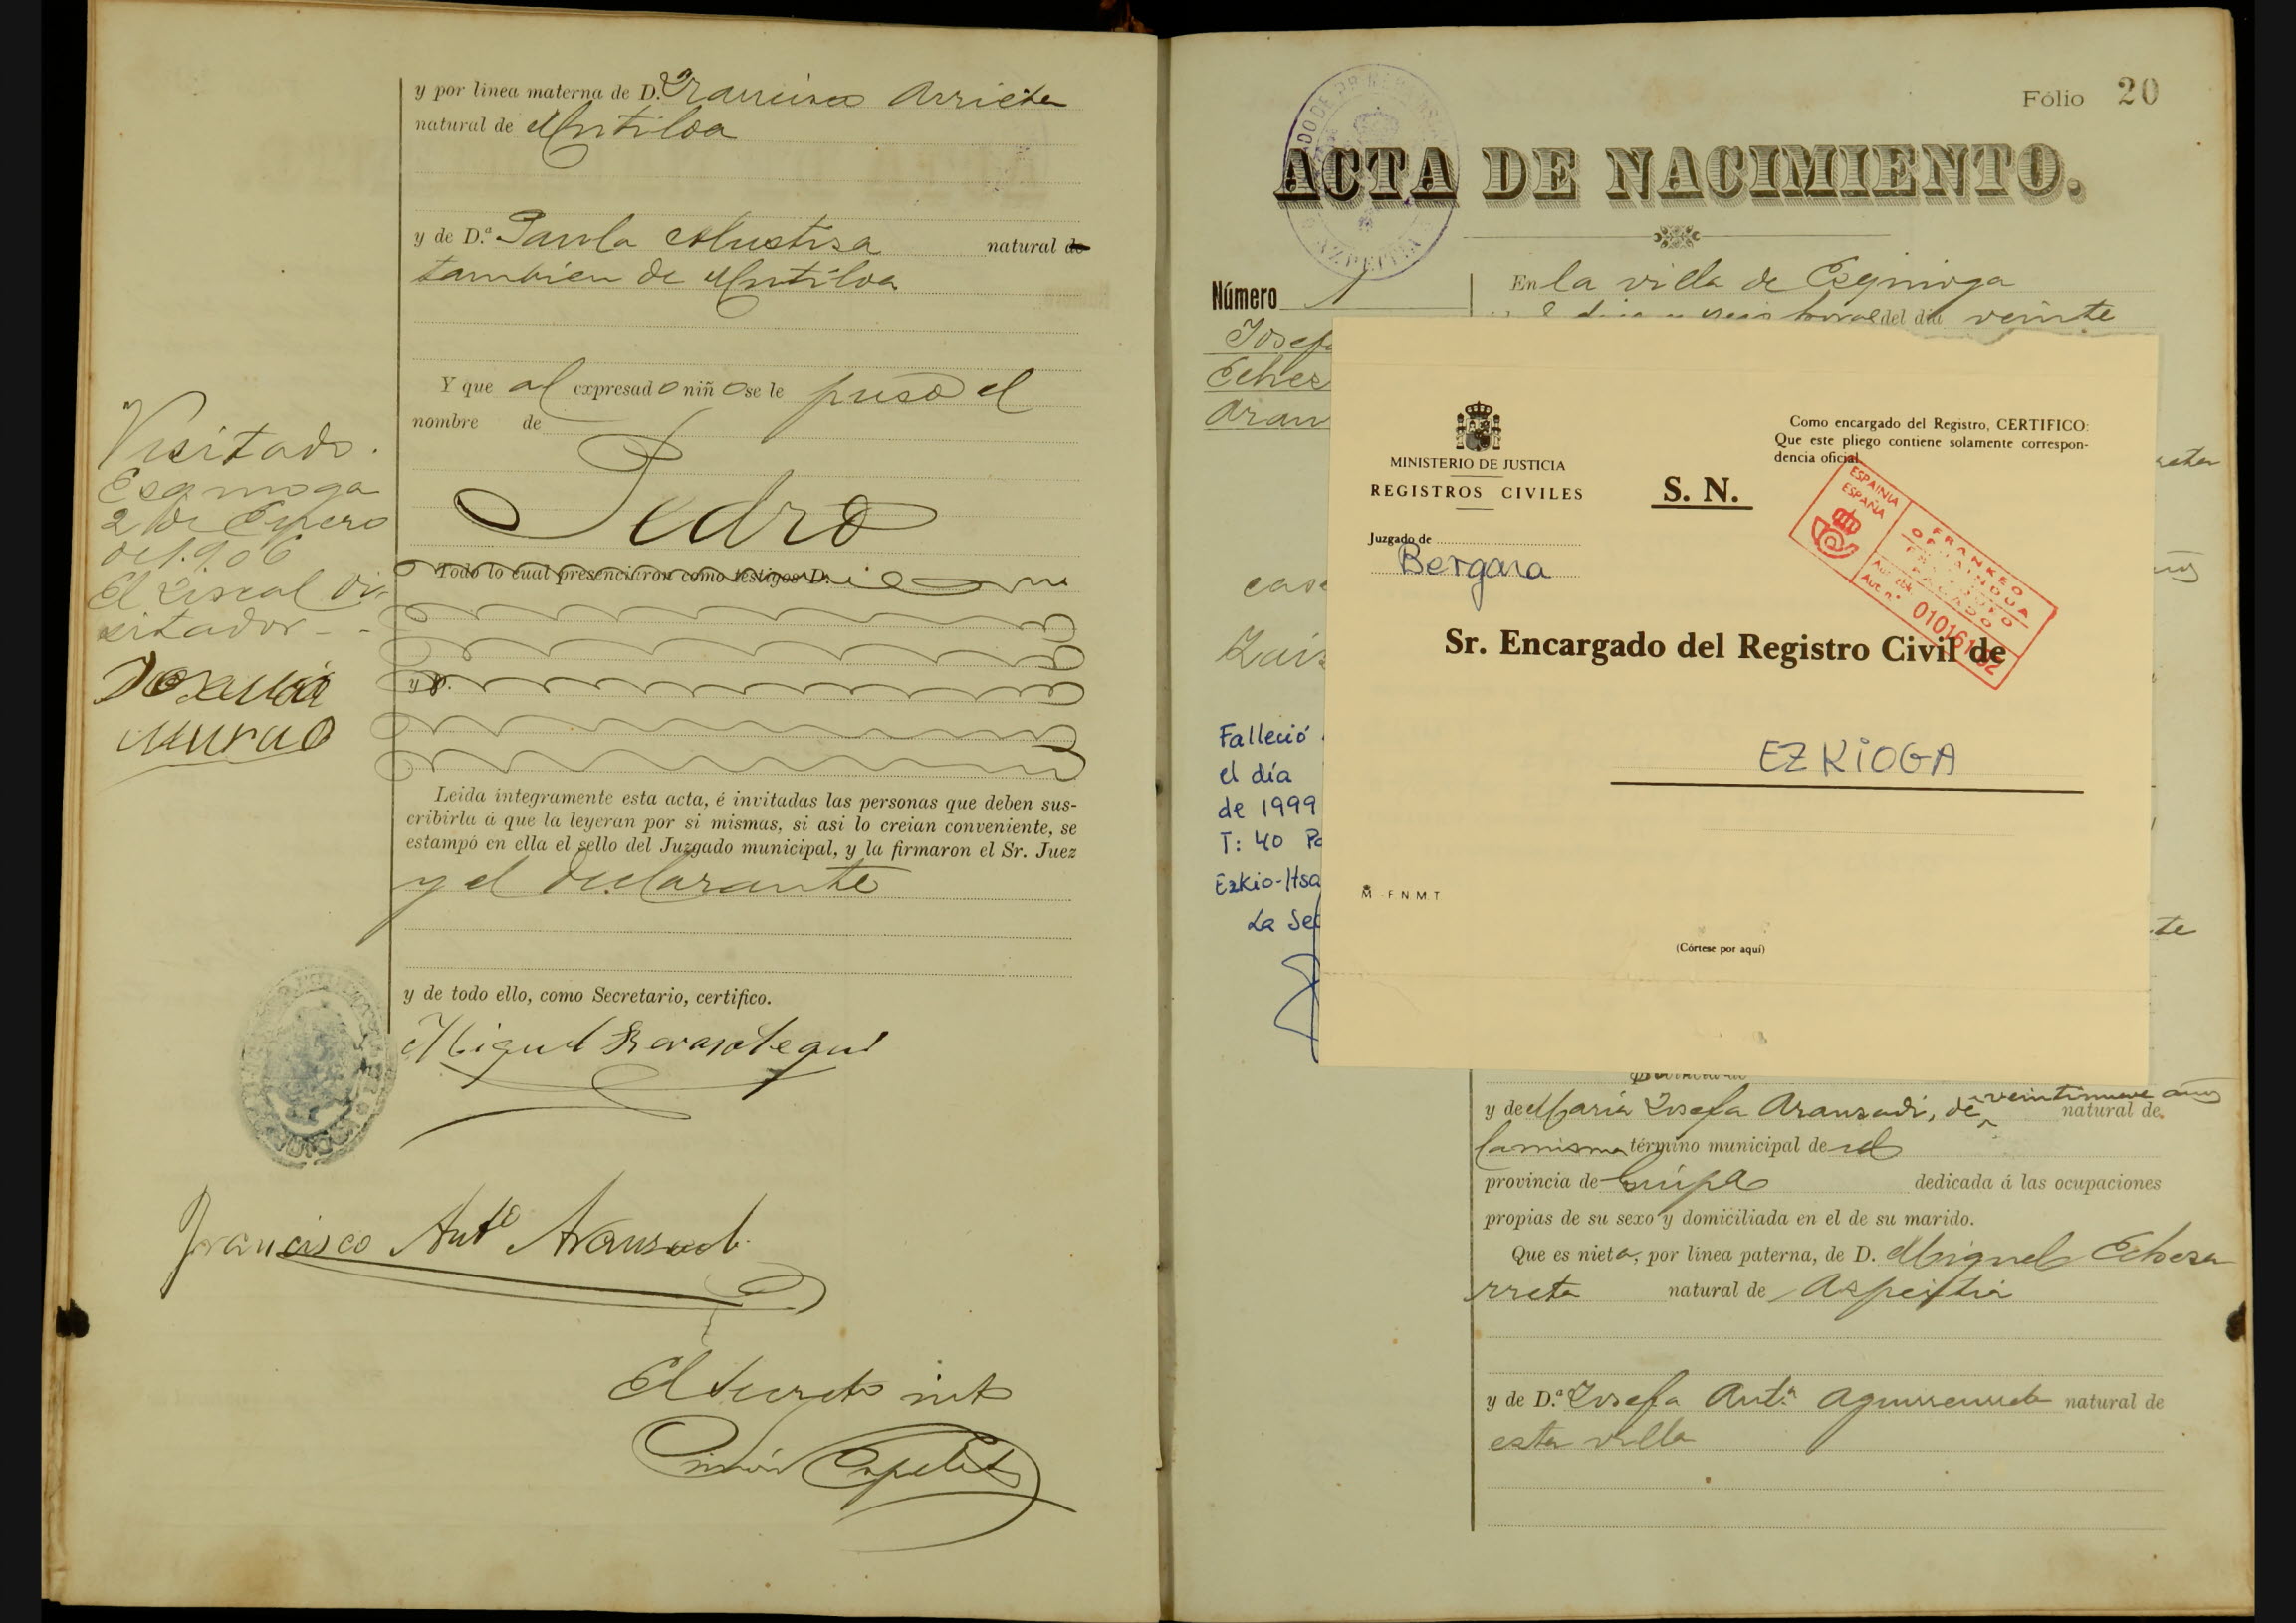 y por línea materna de D. Francisco Arrieta
natural de Mutiloa
y de D.ª Paula Mustisa natural de
tambien de Mutiloa
Y que al expresado niño se le puso el
nombre de
Pedro
Todo lo cual presenciaron como testigos D.
y D.
Leida íntegramente esta acta, é invitadas las personas que deben sus-
cribirla á que la leyeran por si mismas, si asi lo creian conveniente, se
estampó en ella el sello del Juzgado municipal, y la firmaron el Sr. Juez
y el declarante
y de todo ello, como Secretario, certifico.
Miguel
Francisco Antº Aranzadi
El Secretº intº
Visitado.
Esquioga
2 de Enero
de 1.906
El Fiscal Vi-
sitador - -
Fólio 20
ACTA DE NACIMIENTO.
AZPEITIA
Número 1
En la villa de Esquioga
horas del día veinte
Josefa
Echez
Aran
MINISTERIO DE JUSTICIA
REGISTROS CIVILES
S. N.
Como encargado del Registro, CERTIFICO:
Que este pliego contiene solamente correspon-
dencia oficial.
Juzgado de
Bergara
ESPAINIA
ESPAÑA
FRANKEO
ORDAINDUA
FRANQUEO
PAGADO
Aut. n.º
Sr. Encargado del Registro Civil de
EZKIOGA
M - F.N.M.T.
(Córtese por aquí)
Falleció
el día
de 1999
T: 40
Ezkio-Itsa
La Sec
y de María Josefa Aranzadi, de veintinueve años natural de
la misma término municipal de id
provincia de Guipª dedicada á las ocupaciones
propias de su sexo y domiciliada en el de su marido.
Que es nieta, por línea paterna, de D. Miguel Echeza
rreta natural de Azpeitia
y de D.ª Josefa Ant.ª natural de
esta villa